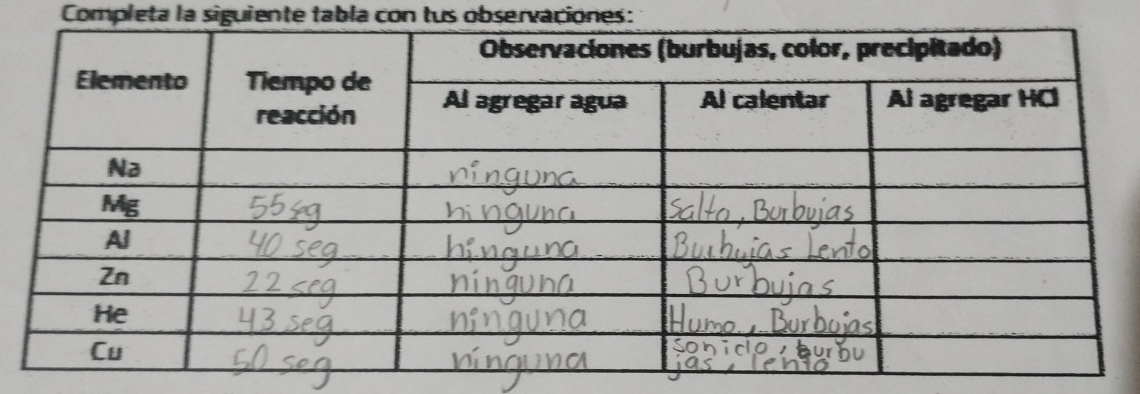 Completa la siguiente tabla con tus observaciones:
Elemento Tiempo de reacción Observaciones (burbujas, color, precipitado)
Al agregar agua Al calentar Al agregar HCl
Na ninguna
Mg 55 sg ninguna Salto, Burbujas
Al 40 seg ninguna Burbujas Lento
Zn 22 seg ninguna Burbujas
He 43 seg ninguna Humo, Burbujas
Cu 50 seg ninguna sonido, burbu
jas, lento